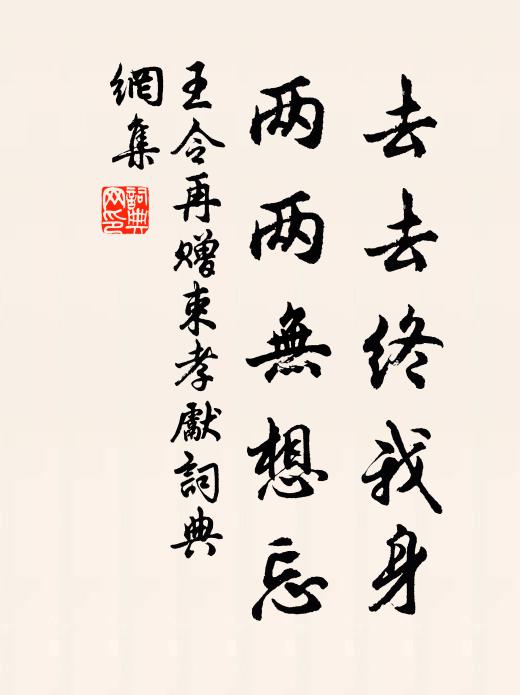 去去終我身
两两無想忘
王令再赠東孝獻詞典
網集
詞典
网印